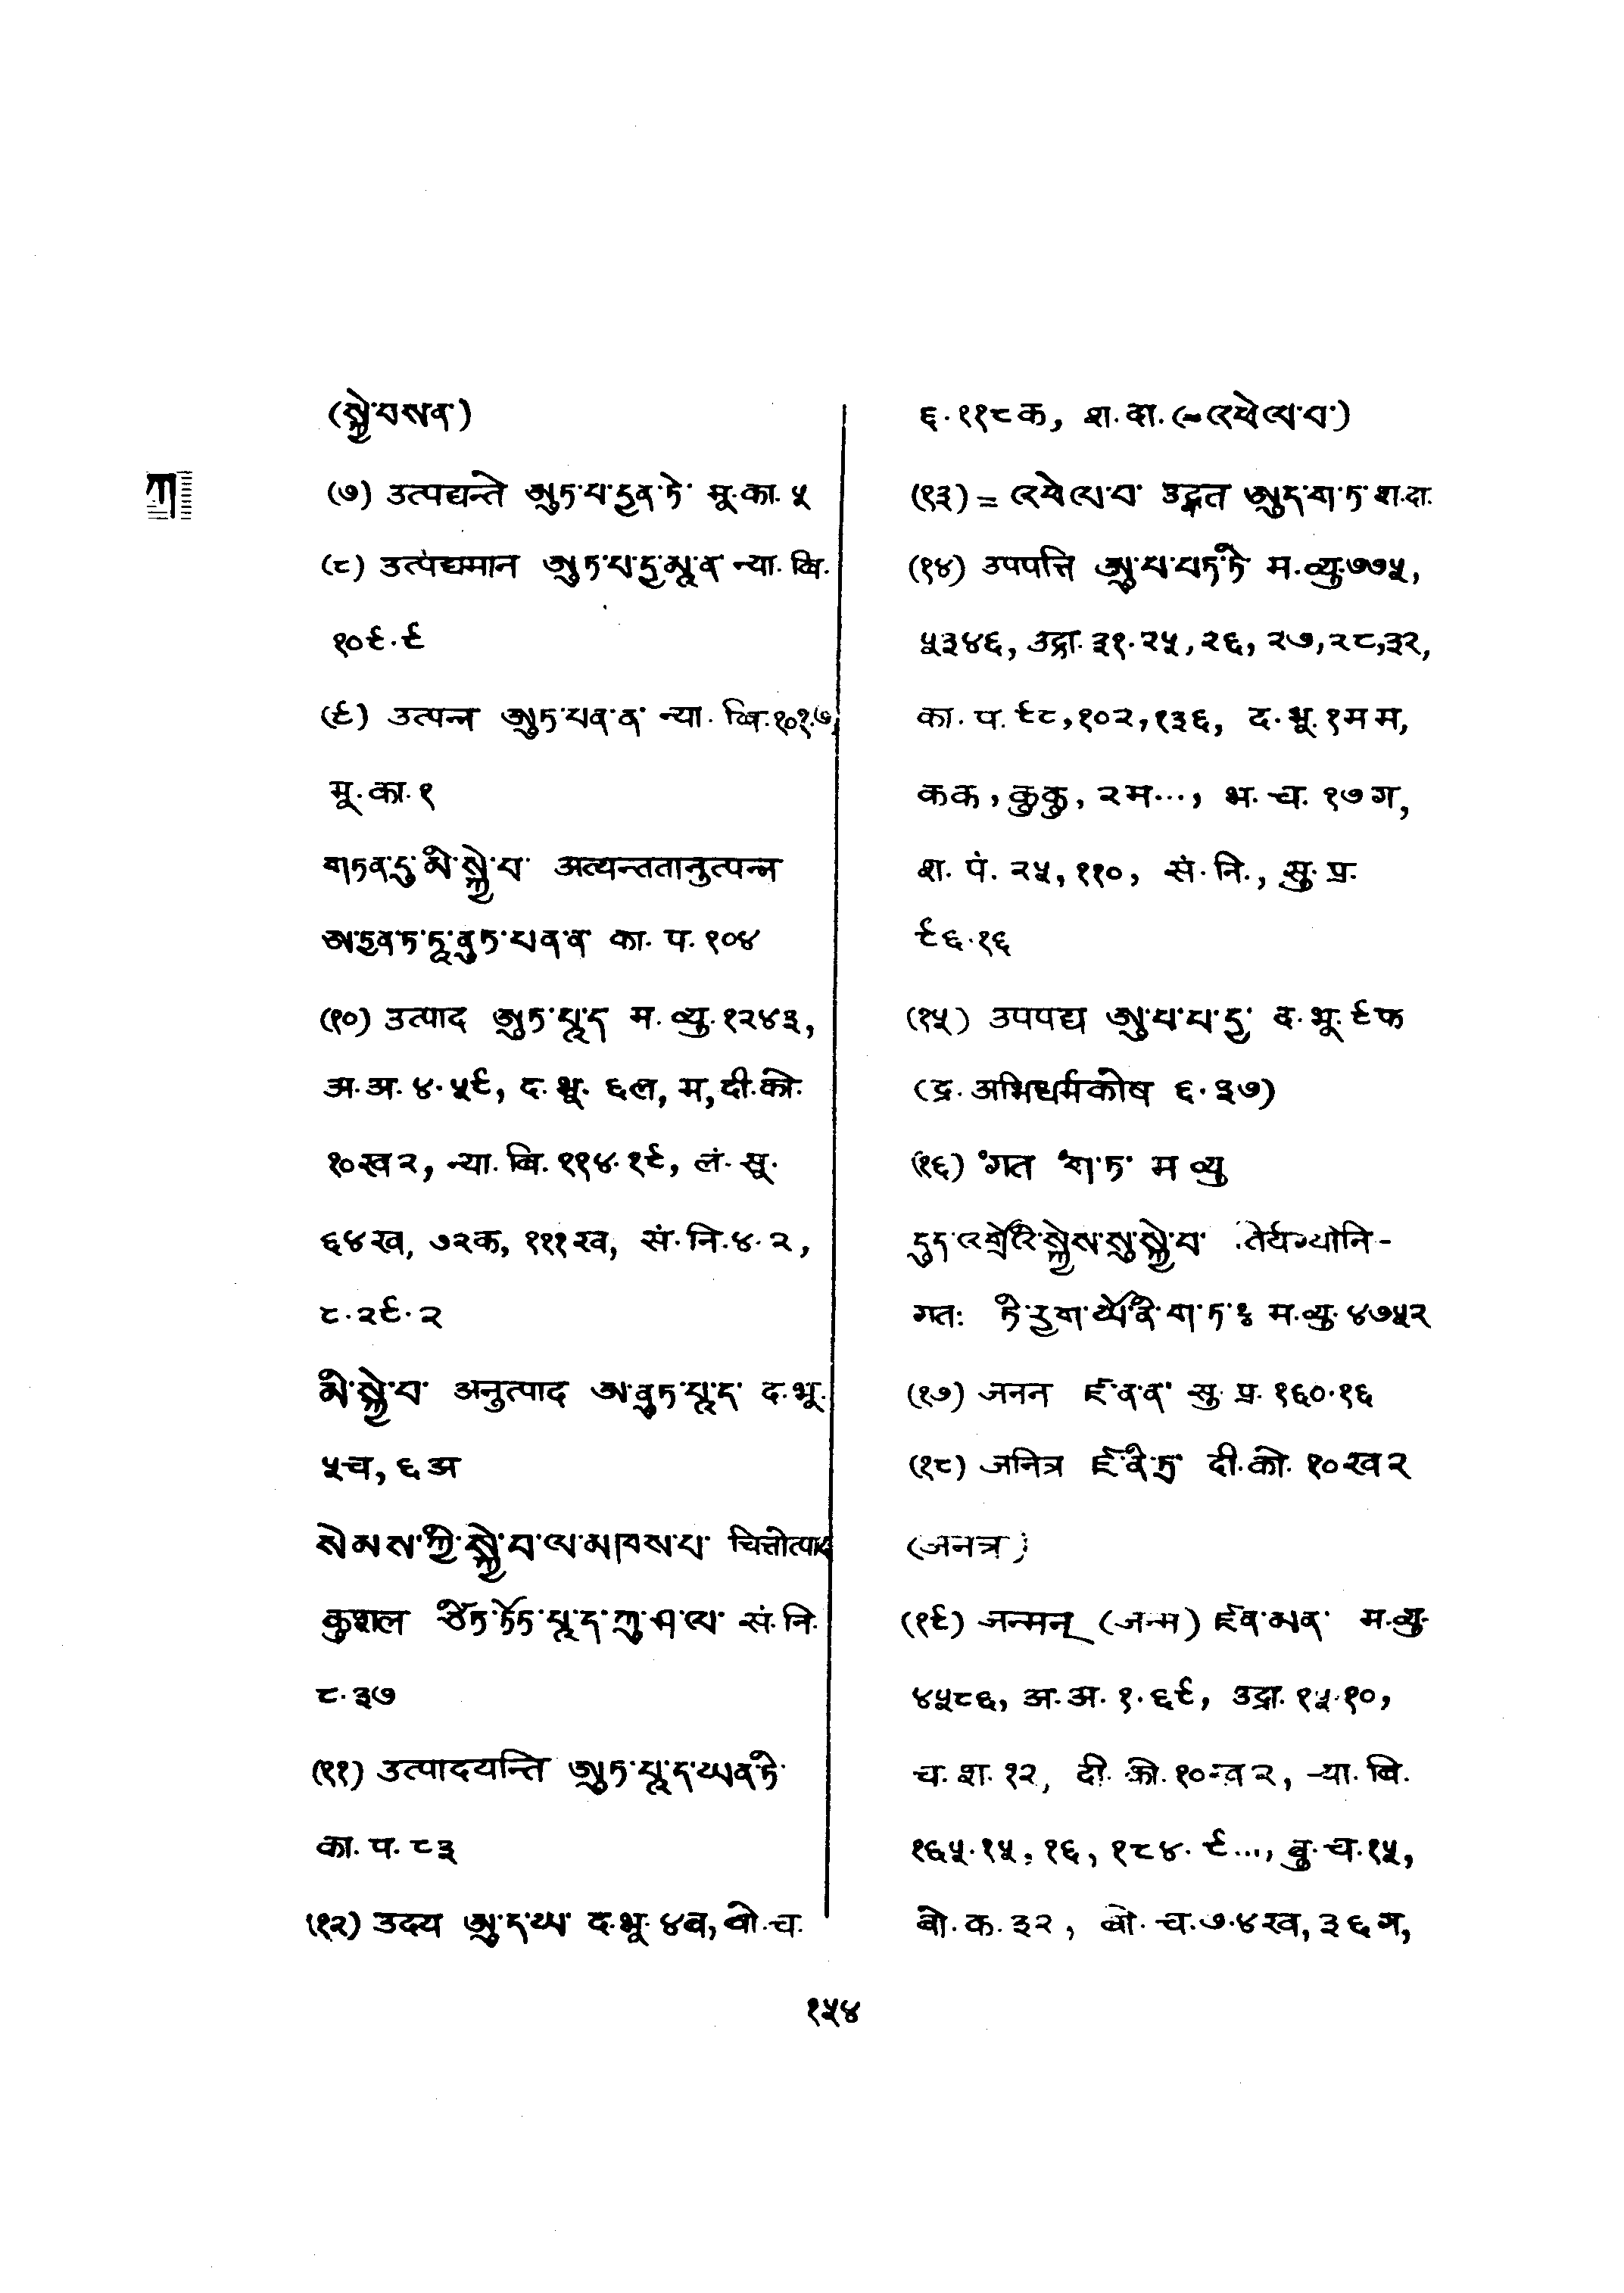 (སྐྱེ་བསན་)
ཀ
(७) उत्पद्यन्ते ཨུཏ་པ་དྱན་ཏེ་ मू.का. ५
(८) उत्पद्यमान ཨུཏ་པ་དྱ་མཱ་ན न्या. बि.
१०९.९
(९) उत्पन्न ཨུཏ་པན་ན་ न्या. बि.१०१.७,
मू.का.१
གཏན་དུ་མི་སྐྱེ་བ་ अत्यन्ततानुत्पन्न
ཨ་ཏྱན་ཏ་ཏཱ་ནུཏ་པན་ན་ का. प. १०४
(१०) उत्पाद ཨུཏ་པཱ་ད म. व्यु. १२४३,
अ.अ. ४.५९, द. भू. ६ल, म, दी.को.
१०ख२, न्या. बि. ११४.१९, लं. सू.
६४ख, ७२क, १११ख, सं.नि.४.२,
८.२९.२
མི་སྐྱེ་བ་ अनुत्पाद ཨ་ནུཏ་པཱ་ད་ द.भू.
५च, ६अ
སེམས་ཀྱི་སྐྱེ་བ་ལ་མཁས་པ་ चित्तोत्पाद
कुशल ཙིཏ་ཏོཏ་པཱ་ད་ཀུ་ཤ་ལ་ सं.नि.
८.३७
(११) उत्पादयन्ति ཨུཏ་པཱ་ད་ཡན་ཏི་
का. प. ८३
(१२) उदय ཨུ་ད་ཡ་ द.भू. ४ब, बो.च.
६.११८क, श.दा. (=འཕེལ་བ་)
(१३) = འཕེལ་བ་ उद्गत ཨུད་ག་ཏ་ श.दा.
(१४) उपपत्ति ཨུ་པ་པཏ་ཏི་ म.व्यु.७७५,
५३४६, उद्रा. ३१.२५, २६, २७, २८, ३२,
का. प. ९८, १०२, १३६, द.भू. १मम,
कक, कुकु, २म..., भ. च. १७ग,
श. पं. २५, ११०, सं.नि., सु.प्र.
९६.१६
(१५) उपपद्य ཨུ་པ་པ་དྱ་ द.भू. ९फ
(द्र. अभिधर्मकोष ६.३७)
(१६) °गत °ག་ཏ་ म व्यु
དུད་འགྲོའི་སྐྱེས་སུ་སྐྱེ་བ་ तिर्यग्योनि-
गतः ཏི་རྱག་ཡོ་ནི་ག་ཏ་ཿ म.व्यु. ४७५२
(१७) जनन ཛ་ན་ན་ सु. प्र. १६०.१६
(१८) जनित्र ཛ་ནི་ཏྲ་ दी.को. १०ख२
(जनत्र)
(१९) जन्मन् (जन्म) ཛན་མན་ म.व्यु.
४५८६, अ.अ. १.६९, उद्रा. १५.१०,
च. श. १२, दी. को. १०ख२, न्या. बि.
१६५.१५, १६, १८४.९..., बु.च.१५,
बो.क. ३२, बो. च.७.४ख, ३६ग,
१५४